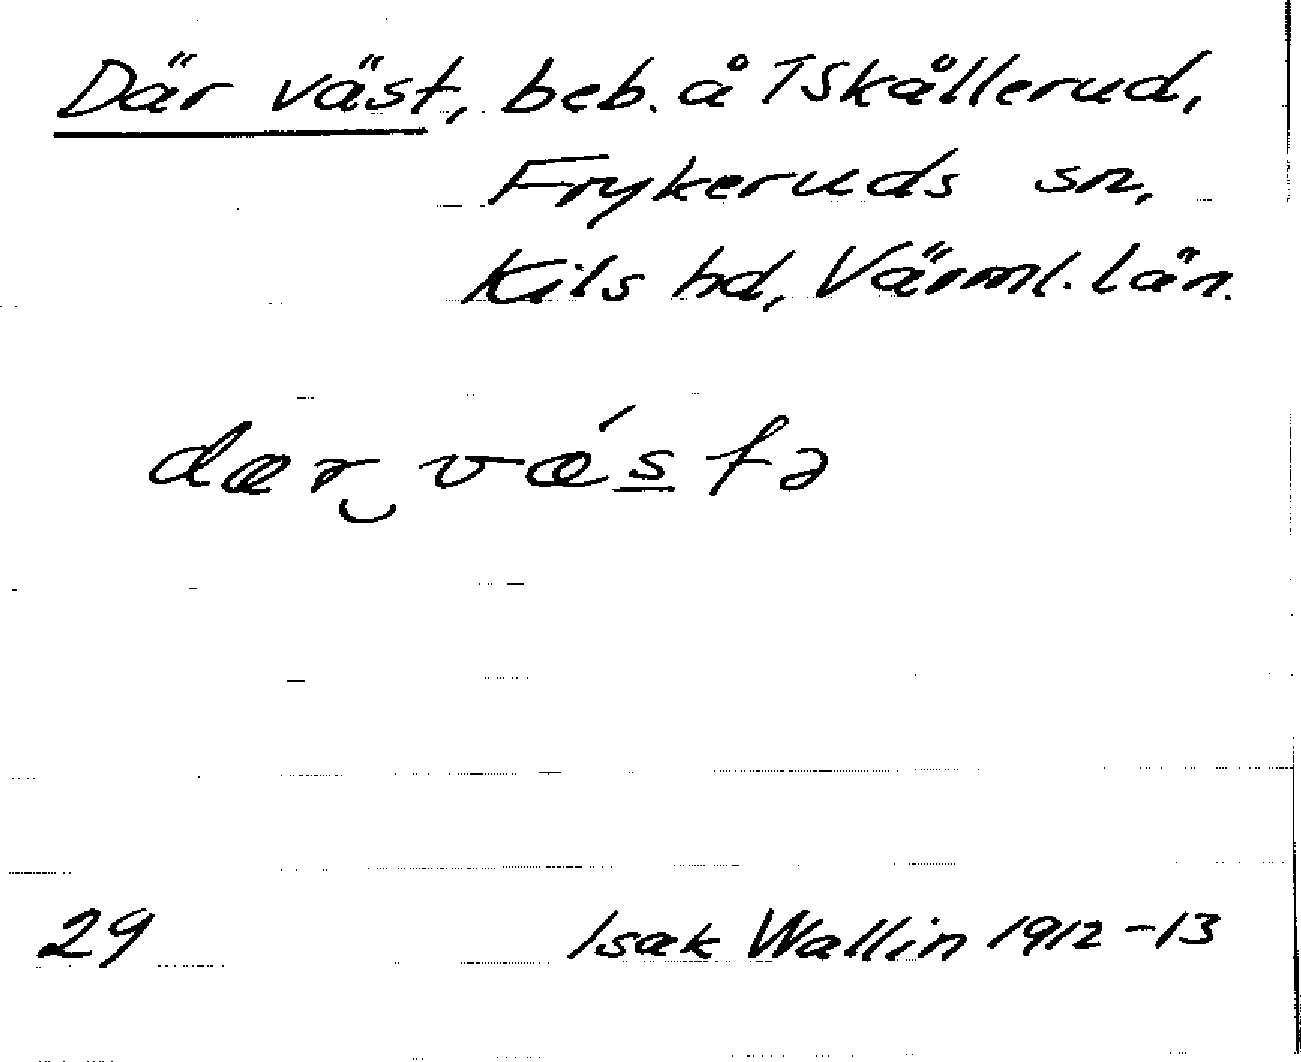 Där väst, beb. å TSkållerud,
Frykeruds sn,
Kils hd, Värml. län.
dær‿vǽstə
29 Isak Wallin 1912-13